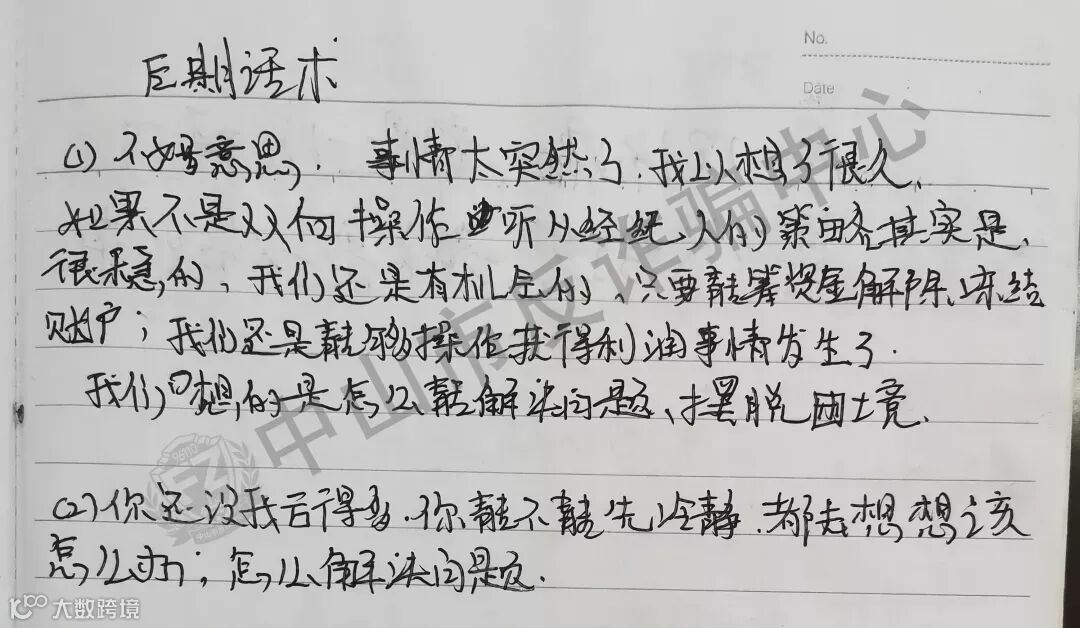 No.
Date
后期话术
(1) 不好意思, 事情太突然了.我也想了很久、
如果不是双向操作 听从经纪人的策略其实是、
很稳的,我们还是有机会的、只要能筹资金解除冻结
账户;我们还是能够操作获得利润事情发生了.
我们 想的是怎么能解决问题、摆脱困境、
(2)你还没我亏得多.你能不能先冷静.都去想想该
怎么办;怎么解决问题.
中山市反诈骗中心
大数跨境